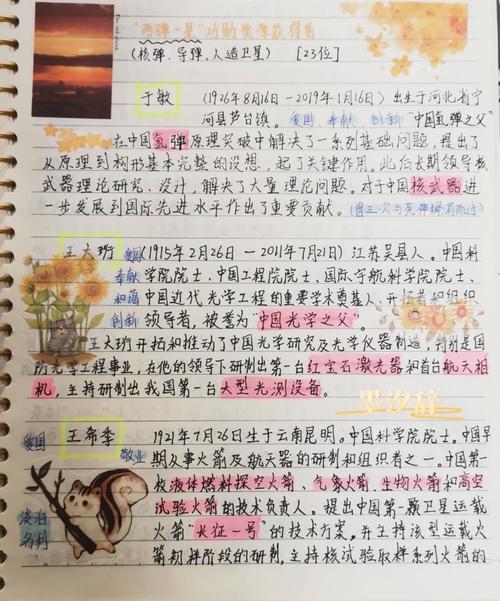 "两弹一星"功勋奖章获得者
(核弹、导弹、人造卫星) [23位]
于敏 (1926年8月16日-2019年1月16日)出生于河北省宁
河县芦台镇。 爱国、奉献 创新 "中国氢弹之父"
在中国氢弹原理突破中解决了一系列基础问题,提出了
从原理到构形基本完整的设想,起了关键作用。此后长期领导核
武器理论研究、设计,解决了大量理论问题。对于中国核武器进一
步发展到国际先进水平作出了重要贡献。(曾三次与死神擦肩而过)
王大珩 爱国 (1915年2月26日-2011年7月21日)江苏吴县人。中国科
奉献 学院院士、中国工程院院士、国际宇航科学院院士。
和谐 中国近代光学工程的重要学术奠基人、开拓者和组织
创新 领导者,被誉为"中国光学之父"
王大珩开拓和推动了中国光学研究及光学仪器制造,特别是国
防光学工程事业,在他的领导下研制出第一台红宝石激光器和首台航天相
机,主持研制出我国第一台大型光测设备。
墨汐
爱国 王希季 1921年7月26日生于云南昆明。中国科学院院士。中国早
敬业 期从事火箭及航天器的研制和组织者之一。中国第一
枚液体燃料探空火箭、气象火箭、生物火箭和高空
试验火箭的技术负责人。提出中国第一颗卫星运载
淡泊 火箭"长征一号"的技术方案,并主持该型运载火
名利 箭初样阶段的研制,主持核试验取样系列火箭的